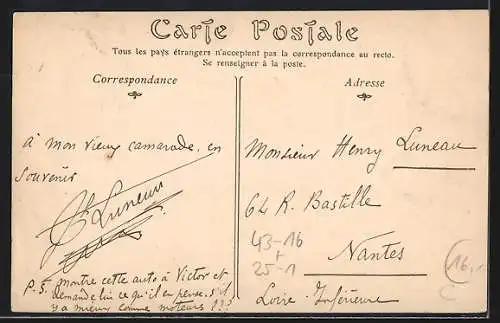 Carte Postale
Tous les pays étrangers n'acceptent pas la correspondance au recto.
Se renseigner à la poste.
Correspondance
Adresse
à mon vieux camarade, en
souvenir
Luneau
P.S. montre cette auto à Victor et
demande lui ce qu'il en pense. s'il
y a mieux comme moteurs ???
Monsieur Henry Luneau
64 R. Bastille
Nantes
Loire-Inférieure
43-16
+
25-1
16,1
C